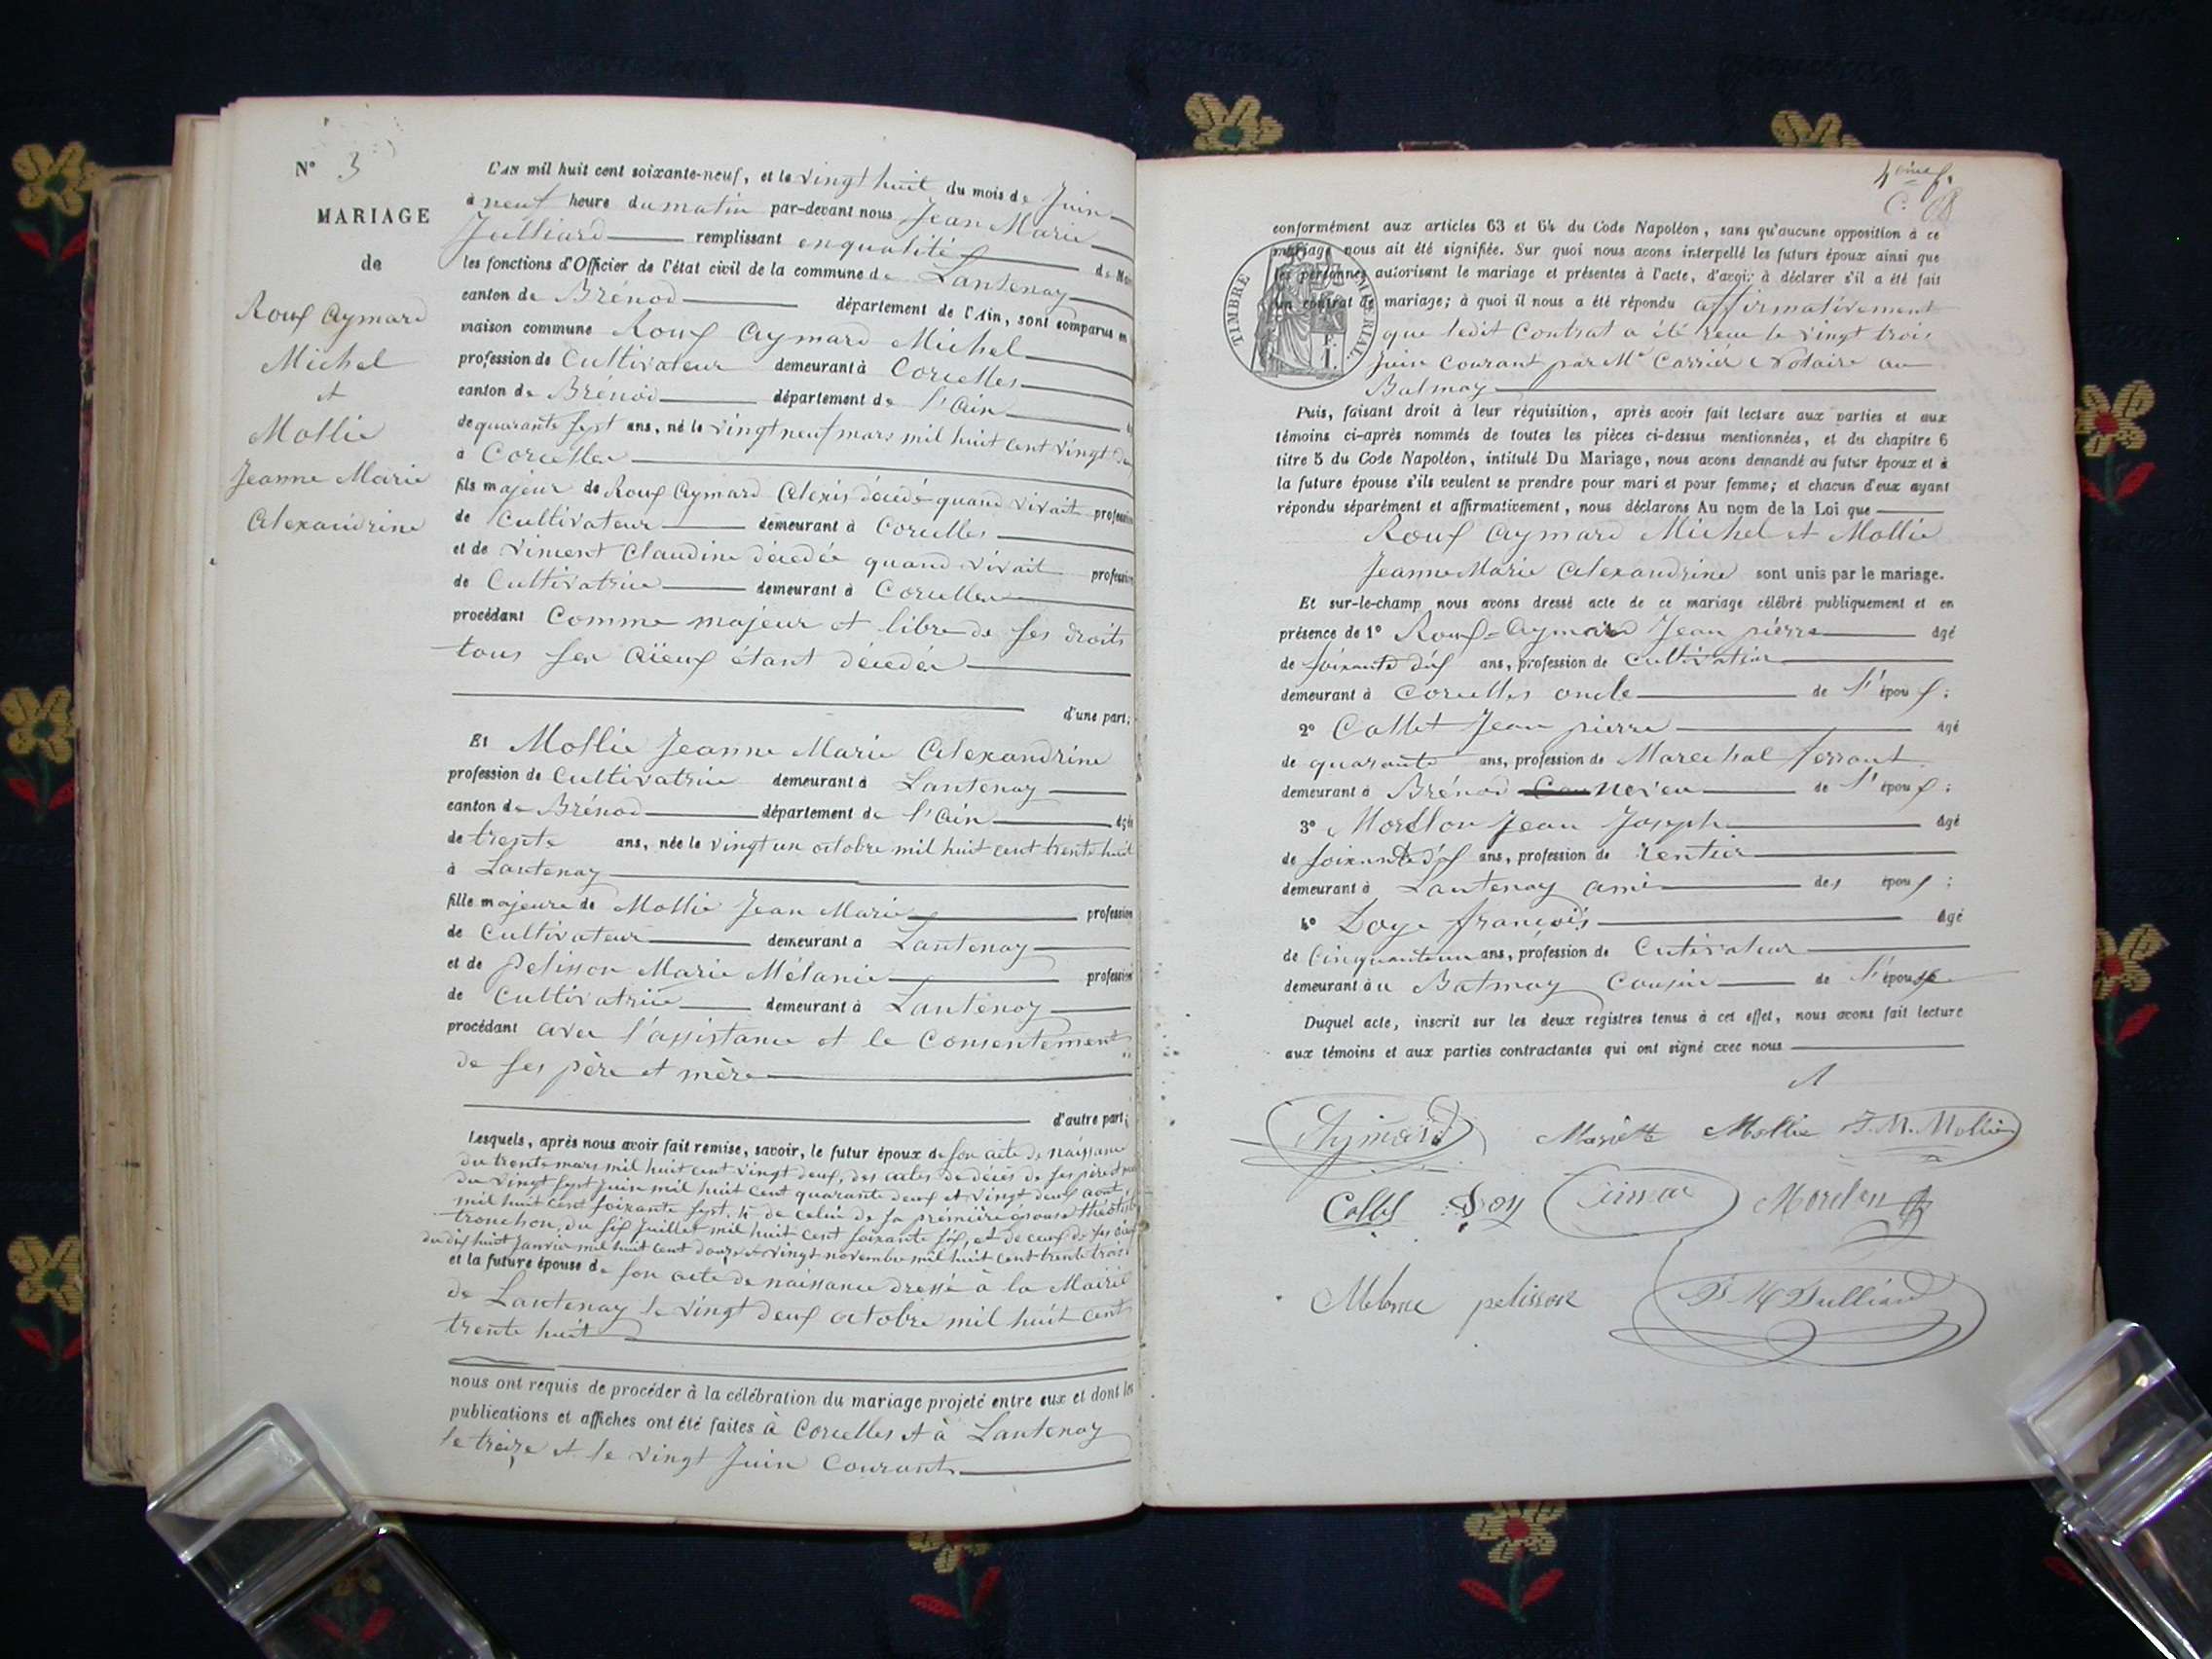 N° 3
MARIAGE
de
Roux Aymard
Michel
et
Mollie
Jeanne Marie
Alexandrine
L'AN mil huit cent soixante-neuf, et le vingt huit du mois de Juin
à neuf heure du matin par-devant nous Jean Marie
Julliard remplissant en qualité de
les fonctions d'Officier de l'état civil de la commune de Lantenay
canton de Brénod département de l'Ain, sont comparus en
maison commune Roux Aymard Michel
profession de Cultivateur demeurant à Corcelles
canton de Brénod département de l'Ain
de quarante sept ans, né le vingt neuf mars mil huit cent vingt deux
à Corcelles
fils majeur de Roux Aymard Alexis décédé quand vivait profession
de Cultivateur demeurant à Corcelles
et de Vincent Claudine décédée quand vivait profession
de Cultivatrice demeurant à Corcelles
procédant Comme majeur et libre de ses droits
tous ses aïeux étant décédés
d'une part;
Et Mollie Jeanne Marie Alexandrine
profession de Cultivatrice demeurant à Lantenay
canton de Brénod département de l'Ain âgée
de trente ans, née le vingt un octobre mil huit cent trente huit
à Lantenay
fille majeure de Mollie Jean Marie profession
de Cultivateur demeurant à Lantenay
et de Pelisson Marie Mélanie profession
de Cultivatrice demeurant à Lantenay
procédant avec l'assistance et le Consentement
de ses père et mère
d'autre part;
Lesquels, après nous avoir fait remise, savoir, le futur époux de son acte de naissance
du trente mars mil huit cent vingt deux, des actes de décès de ses père et mère
du vingt sept juin mil huit cent quarante deux et vingt deux août
mil huit cent soixante sept, de celui de sa première épouse
tronchon, du six Juillet mil huit cent soixante six, et de ceux de ses aïeux
du dix huit Janvier mil huit cent douze et vingt novembre mil huit cent trente trois
et la future épouse de son acte de naissance dressé à la Mairie
de Lantenay le vingt deux octobre mil huit cent
trente huit
nous ont requis de procéder à la célébration du mariage projeté entre eux et dont les
publications et affiches ont été faites à Corcelles et à Lantenay
le treize et le vingt Juin Courant
conformément aux articles 63 et 64 du Code Napoléon, sans qu'aucune opposition à ce
mariage nous ait été signifiée. Sur quoi nous avons interpellé les futurs époux ainsi que
les personnes autorisant le mariage et présentes à l'acte, d'avoir à déclarer s'il a été fait
un contrat de mariage; à quoi il nous a été répondu affirmativement
TIMBRE IMPÉRIAL
1 F.
que ledit Contrat a été reçu le vingt trois
Juin Courant par Me Carrier Notaire au
Balmay
Puis, faisant droit à leur réquisition, après avoir fait lecture aux parties et aux
témoins ci-après nommés de toutes les pièces ci-dessus mentionnées, et du chapitre 6
titre 5 du Code Napoléon, intitulé Du Mariage, nous avons demandé au futur époux et à
la future épouse s'ils veulent se prendre pour mari et pour femme; et chacun d'eux ayant
répondu séparément et affirmativement, nous déclarons Au nom de la Loi que
Roux Aymard Michel et Mollie
Jeanne Marie Alexandrine sont unis par le mariage.
Et sur-le-champ nous avons dressé acte de ce mariage célébré publiquement et en
présence de 1° Roux-Aymard Jean pierre âgé
de soixante dix ans, profession de Cultivateur
demeurant à Corcelles oncle de l'époux;
2° Collet Jean pierre âgé
de quarante ans, profession de Marechal ferrant
demeurant à Brénod neveu de l'époux;
3° Morellon Jean Joseph âgé
de soixante dix ans, profession de rentier
demeurant à Lantenay ami des époux;
4° Loye françois âgé
de Cinquante un ans, profession de Cutivateur
demeurant au Balmay Cousin de l'épouse
Duquel acte, inscrit sur les deux registres tenus à cet effet, nous avons fait lecture
aux témoins et aux parties contractantes qui ont signé avec nous
Aymard Mariette Mollie J. M. Mollie
Collet Morellon
pelisson J M Julliard